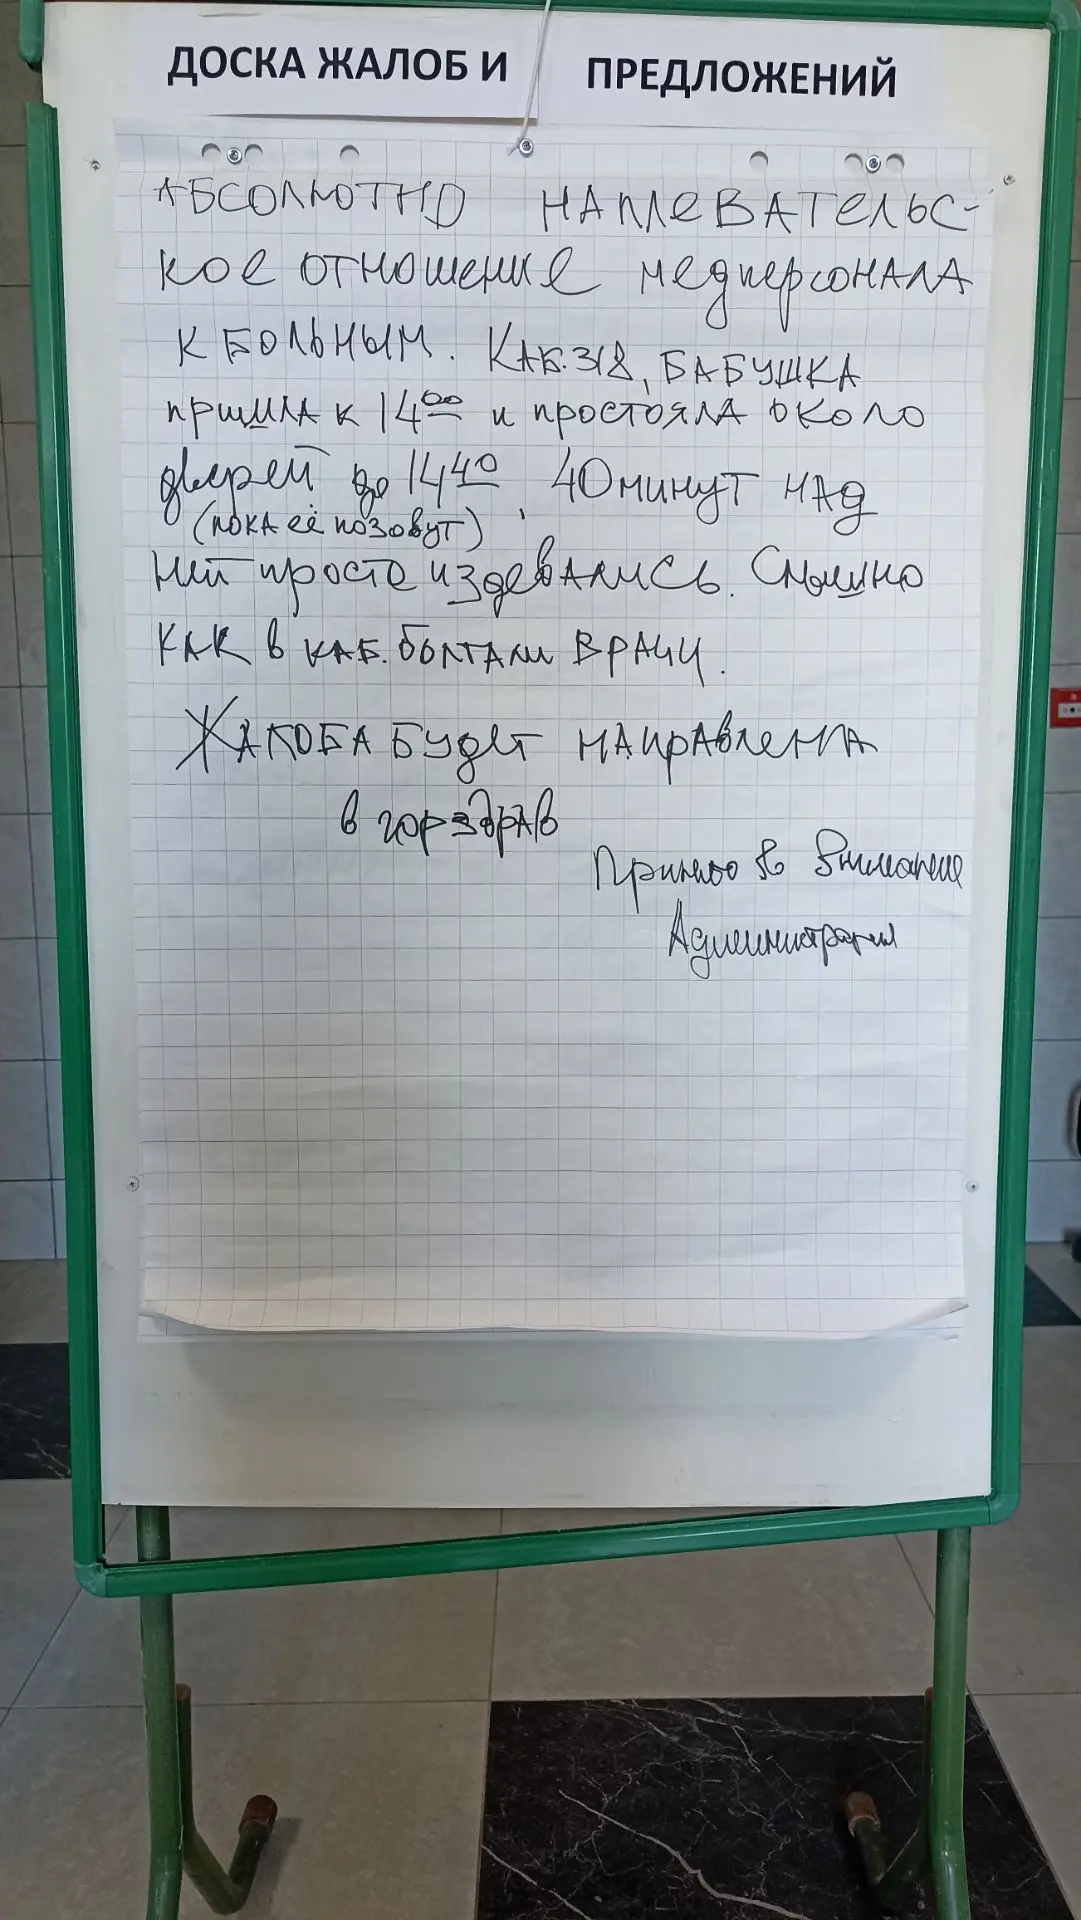 ДОСКА ЖАЛОБ И ПРЕДЛОЖЕНИЙ
АБСОЛЮТНО НАПЛЕВАТЕЛЬС-
КОЕ ОТНОШЕНИЕ МЕДПЕРСОНАЛА
К БОЛЬНЫМ. КАБ. 318, БАБУШКА
ПРИШЛА К 14 00 И ПРОСТОЯЛА ОКОЛО
ДВЕРЕЙ ДО 14 40, 40 МИНУТ НАД
(ПОКА ЕЁ ПОЗОВУТ)
НЕЙ ПРОСТО ИЗДЕВАЛИСЬ. СЛЫШНО
КАК В КАБ. БОЛТАЛИ ВРАЧИ.
ЖАЛОБА БУДЕТ НАПРАВЛЕНА
В ГОРЗДРАВ
Принято во внимание
Администрация